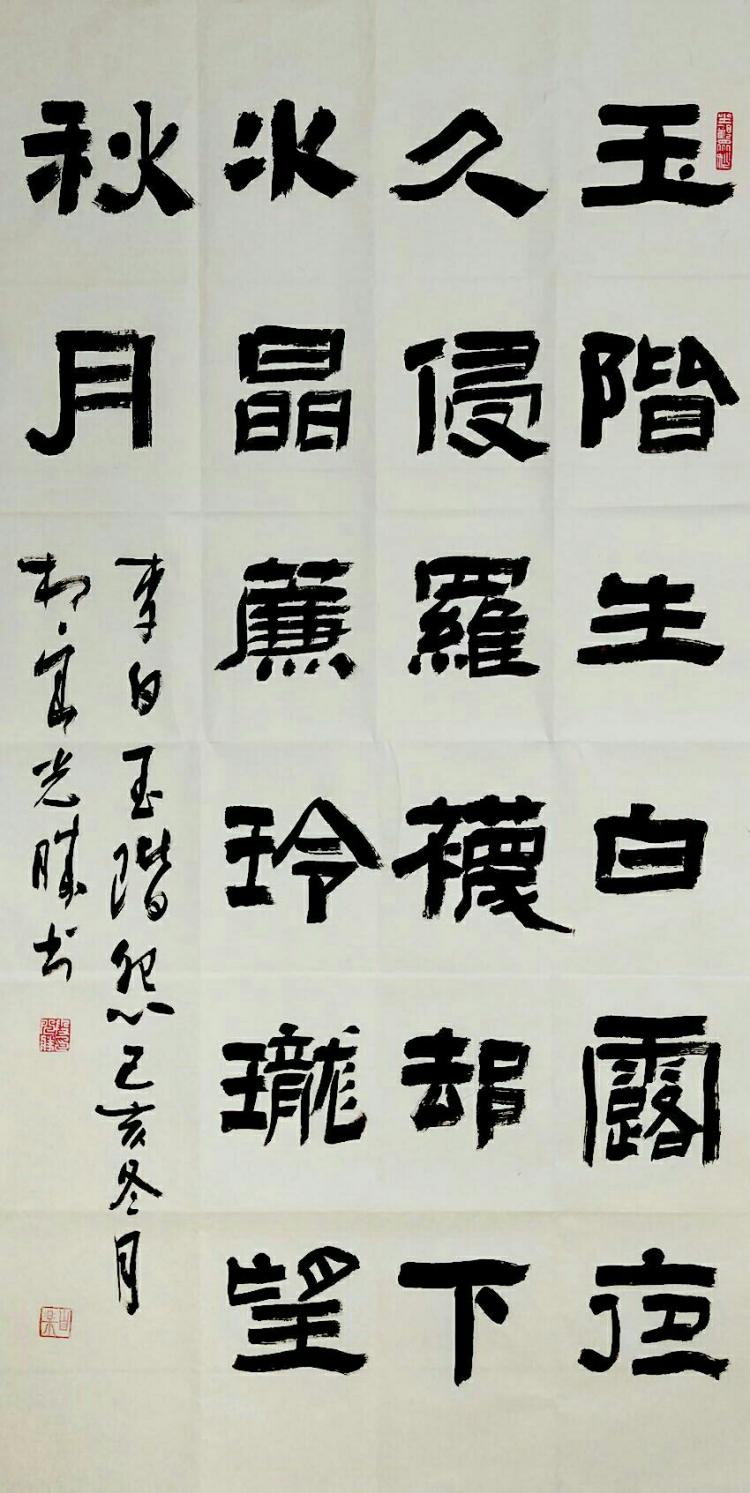 玉階生白露夜
久侵羅襪却下
水晶簾玲瓏望
秋月
李白玉階怨己亥冬月
光勝书